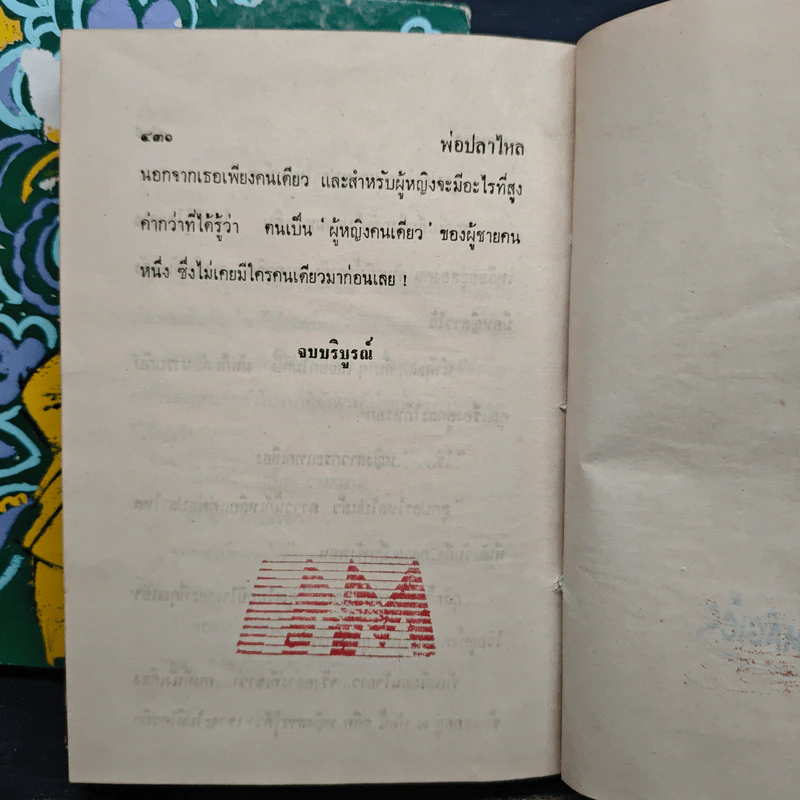 ๔๓๐ พ่อปลาไหล
นอกจากเธอเพียงคนเดียว และสำหรับผู้หญิงจะมีอะไรที่สูง
ค่ากว่าที่ได้รู้ว่า ตนเป็น ' ผู้หญิงคนเดียว ' ของผู้ชายคน
หนึ่ง ซึ่งไม่เคยมีใครคนเดียวมาก่อนเลย !
จบบริบูรณ์